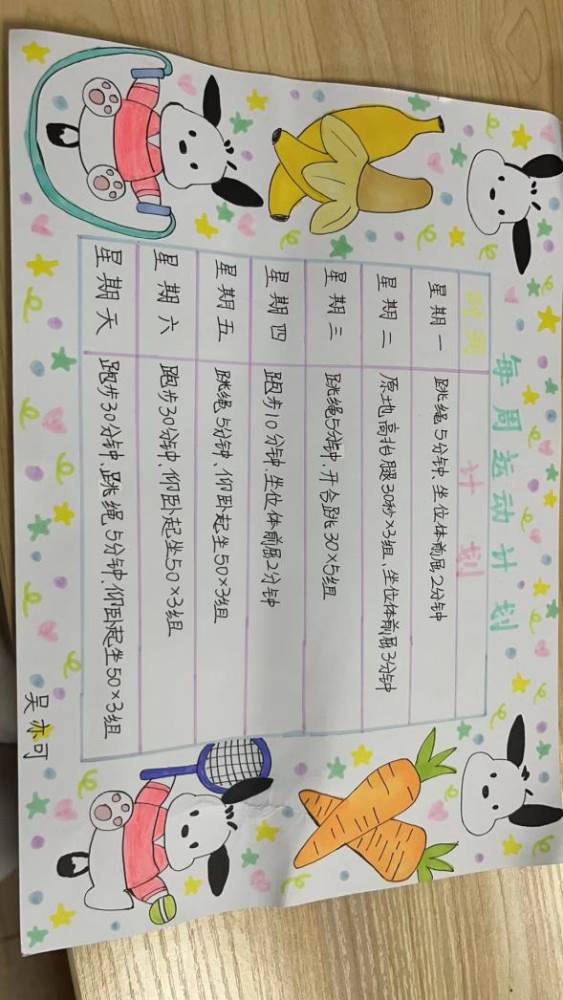 每周运动计划
时间 计划
星期一 跳绳5分钟、坐位体前屈2分钟
星期二 原地高抬腿30秒×3组、坐位体前屈3分钟
星期三 跳绳5分钟、开合跳30×5组
星期四 跑步10分钟、坐位体前屈2分钟
星期五 跳绳5分钟、仰卧起坐50×3组
星期六 跑步30分钟、仰卧起坐50×3组
星期天 跑步30分钟、跳绳5分钟、仰卧起坐50×3组
吴亦可